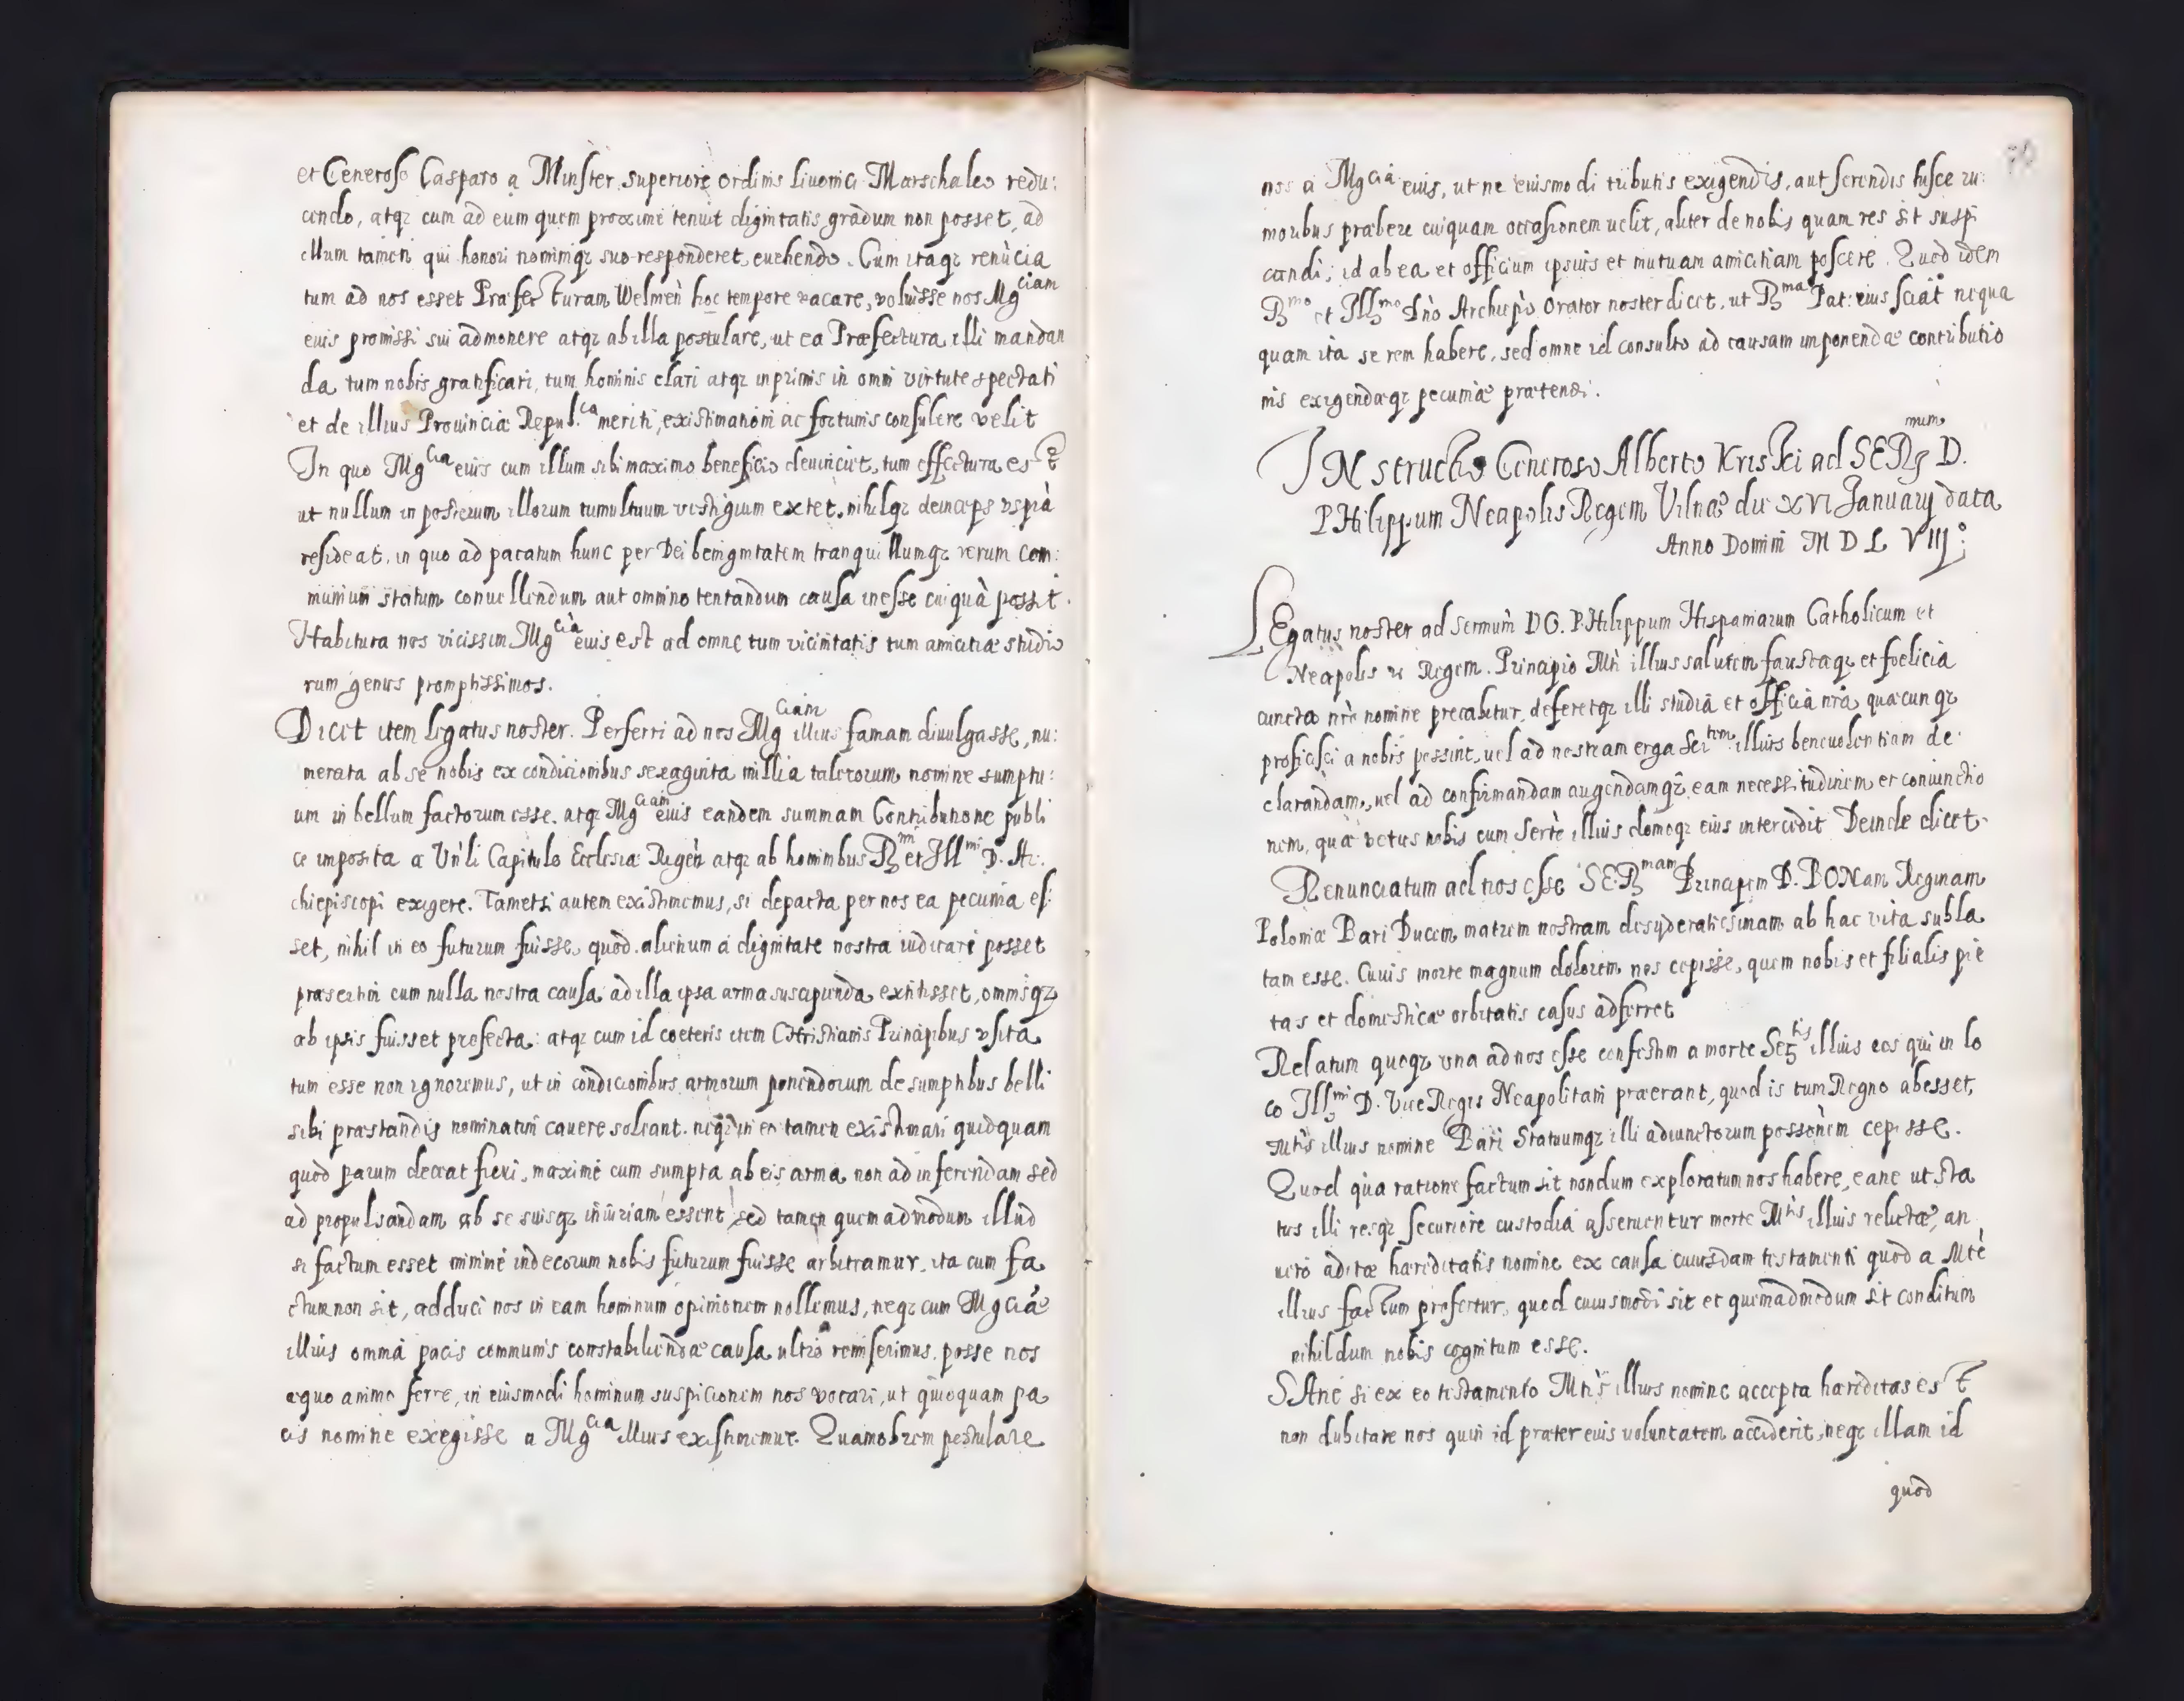 et Generoso Casparo a Minster superiore ordinis Livonici Marschaleo redu:
cendo, atqȝ cum ad eum quem proxime tenuit dignitatis gradum non posset, ad
illum tamen qui honori nominiqȝ suo responderet, euehendo. Cum itaqȝ renũcia
tum ad nos esset Præfecturam Welmeñ hoc tempore vacare, voluisse nos Mgciam
eius promissi sui admonere atqȝ ab illa postulare, ut ea Præfectura illi mandan
da tum nobis gratificari, tum hominis clari atqȝ inprimis in omni virtute spectati
et de illius Prouincia Repub.ca meriti, existimationi ac fortunis consulere velit
In quo Mgcia eius cum illum sibi maximo beneficio deuinciet, tum effectura est
ut nullum in posterum illorum tumultuum vestigium extet, nihilqȝ deinceps vspiã
resideat, in quo ad pacatum hunc per Dei benignitatem tranquillumqȝ rerum com:
munium statum conuellendum aut omnino tentandum causa inesse cuiquã possit.
Habitura nos vicissim Mgcia eius est ad omne tum vicinitatis tum amicitiæ studio
rum genus promptissimos.
Dicet item legatus noster. Perferri ad nos Mgciam illius famam diuulgasse, nu:
merata ab se nobis ex condicionibus sexaginta millia talerorum nomine sumptu:
um in bellum factorum esse, atqȝ Mgciam eius eandem summam Contributione publi
ce imposita a Vnli Capitulo Ecclesiæ Rigeñ atqȝ ab hominibus Rmi et Illmi D. Ar:
chiepiscopi exigere. Tametsi autem existimemus, si depacta per nos ea pecunia es:
set, nihil in eo futurum fuisse, quod alienum a dignitate nostra iudicari posset
præsertim cum nulla nostra causa ad illa ipsa arma suscipienda extitisset, omnisqȝ
ab ipsis fuisset profecta: atqȝ cum id cœteris item CHristianis Principibus vsita
tum esse non ignoremus, ut in condicionibus armorum ponendorum de sumptibus belli
sibi præstandis nominatim cauere soleant. neqȝ in eo tamen existimari quidquam
quod parum deceat fieri, maxime cum sumpta ab eis arma non ad inferendam sed
ad propulsandam ab se suisqȝ iniuriam essent, sed tamen quemadmodum illud
si factum esset minimè indecorum nobis futurum fuisse arbitramur, ita cum fa
ctum non sit, adduci nos in eam hominum opinionem nollemus, neqȝ cum Mgciæ
illius omnia pacis communis constabiliendæ causa ultro remiserimus, posse nos
æquo animo ferre, in eiusmodi hominum suspicionem nos vocari, ut quicquam pa
cis nomine exegisse a Mgcia illius existimemur. Quamobrem postulare
nos a Mgcia eius, ut ne eiusmodi tributis exigendis, aut serendis hisce ru:
moribus præbere cuiquam occasionem uelit, aliter de nobis quam res sit suspi
candi; id ab ea et officium ipsius et mutuam amicitiam poscere. Quod idem
Rmo et Illmo Dño Archiepo Orator noster dicet, ut Rma Pat: eius sciat nequa
quam ita se rem habere, sed omne id consulto ad causam imponendæ contributio
nis exigendæqȝ pecuniæ prætendi.
INstructio Generoso Alberto Kriski ad SERmum D.
PHilippum Neapolis Regem Vilnæ die XVI Januarij data
Anno Domini M D L VIII:
LEgatus noster ad Sermũm DG. PHilippum Hispaniarum Catholicum et
Neapolis Regem. Principio Mti illius salutem faustaqȝ et foelicia
cuncta nrè nomine precabitur, deferetqȝ illi studia et officia nrã, quæcunqȝ
proficisci a nobis possint, uel ad nostram erga Sertem illius beneuolentiam de:
clarandam, uel ad confirmandam augendamqȝ eam necessitudinem et coniunctio
nem, quæ vetus nobis cum Sertè illius domoqȝ eius intercedit Deinde dicet.
Renunciatum ad nos esse SERmam Principem D. BONam Reginam
Poloniæ Bari Ducem, matrem nostram desyderatissimam ab hac vita subla
tam esse. Cuius morte magnum dolorem nos cepisse, quem nobis et filialis pie
tas et domesticæ orbitatis casus adferret
Relatum quoqȝ vna ad nos esse confestim a morte Sertis illius eos qui in lo
co Illmi D. Vice Regis Neapolitani præerant, quod is tum Regno abesset,
Mtis illius nomine Bari Statuumqȝ illi adiunctorum possesiònem cepisse.
Quod qua ratione factum sit nondum exploratum nos habere, eane ut sta
tus illi resqȝ securiore custodia asseruentur morte Mtis illius relictæ, an
uero aditæ hæreditatis nomine ex causa cuiusdam testamenti quod a Mtè
illius factum profertur, quod cuiusmodi sit et quemadmodum sit conditum
nihildum nobis cognitum esse.
SAne si ex eo testamento Mtis illius nomine accepta hæreditas est
non dubitare nos quin id præter eius voluntatem acciderit, neqȝ illam id
quod